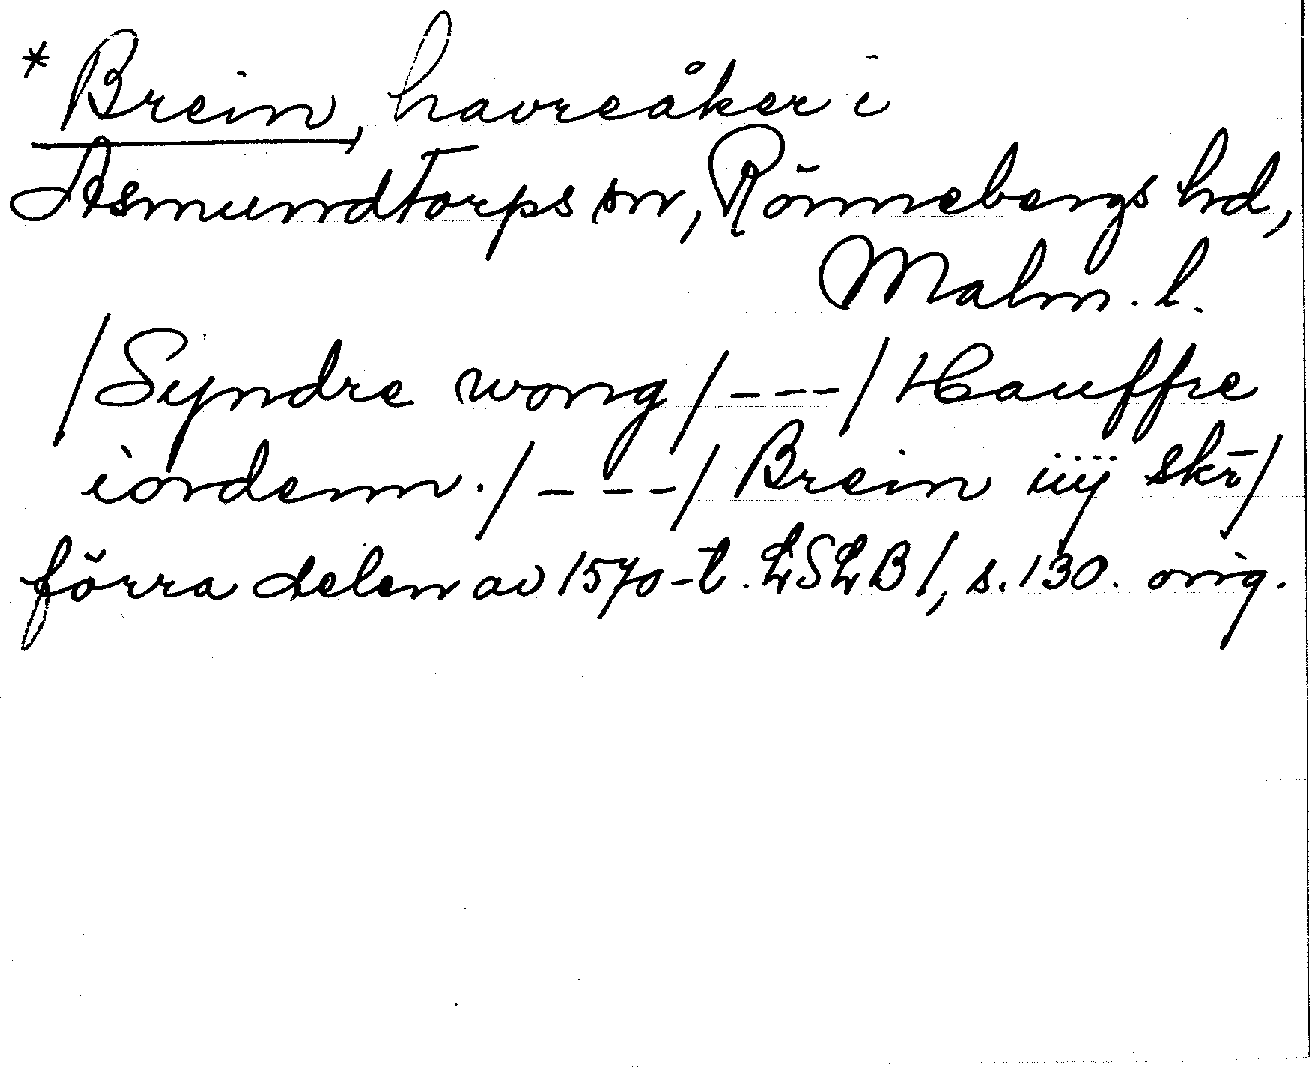 *Brein, havreåker i
Asmundtorps sn, Rönnebergs hd,
Malm. l.
/Syndre wong/---/Hauffre
iordenn./---/Brein iiij skr/
förra delen av 1570-t. LSLB 1, s. 130. orig.